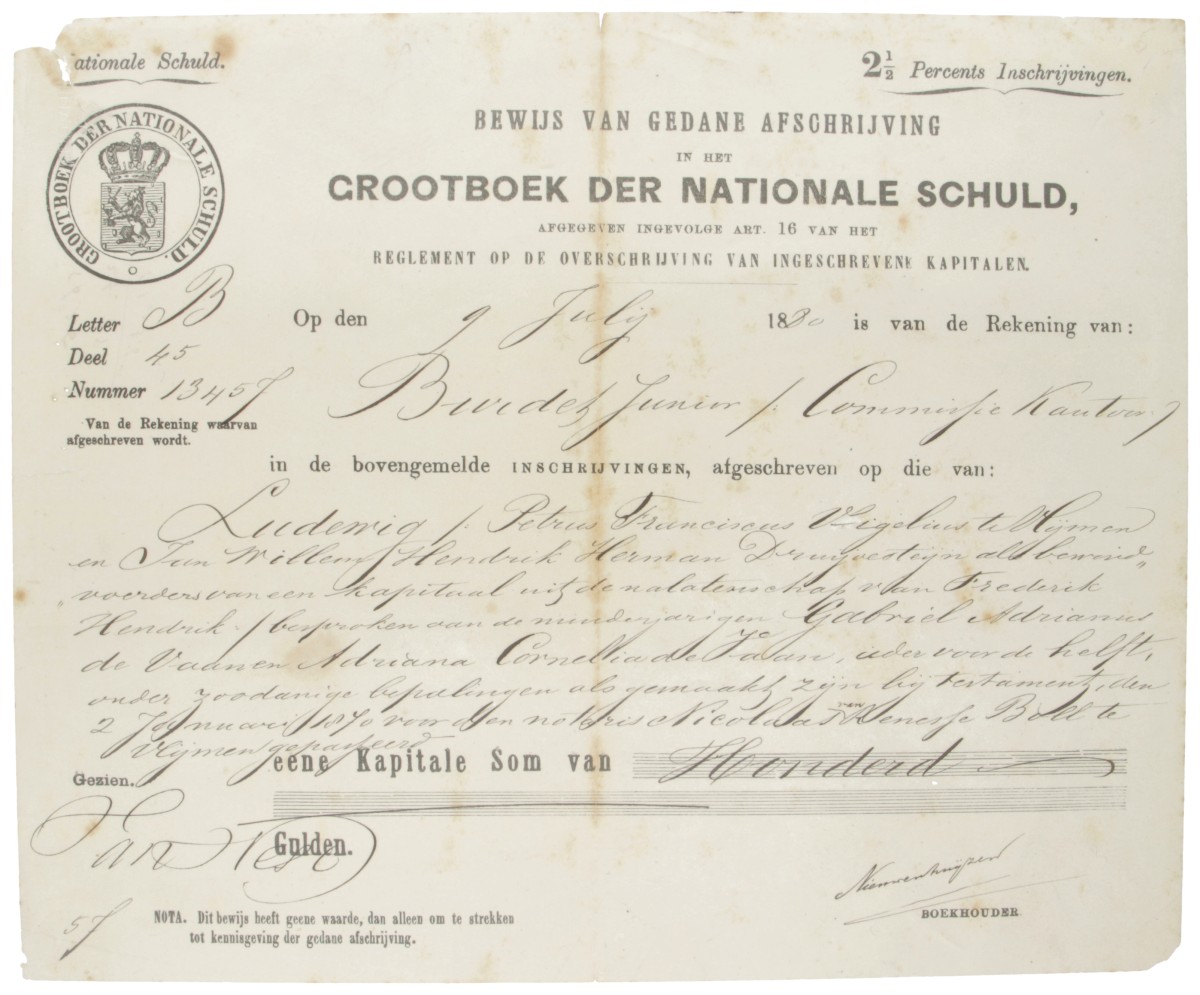 ationale Schuld.
2½ Percents Inschrijvingen.
GROOTBOEK DER NATIONALE SCHULD.
BEWIJS VAN GEDANE AFSCHRIJVING
IN HET
GROOTBOEK DER NATIONALE SCHULD,
AFGEGEVEN INGEVOLGE ART. 16 VAN HET
REGLEMENT OP DE OVERSCHRIJVING VAN INGESCHREVENE KAPITALEN.
Letter B
Deel 45
Nummer 13457
Van de Rekening waarvan
afgeschreven wordt.
Op den 9 Julij 1880 is van de Rekening van:
Burdet Junior /. Commissie Kantoor /
in de bovengemelde INSCHRIJVINGEN, afgeschreven op die van:
Ludewig /. Petrus Franciscus Vigelius te
en Jan Willem Hendrik Herman Druyvesteyn als bewind„
„voerders van een kapitaal uit de nalatenschap van Frederik
Hendrik / besproken aan de minderjarigen Gabriël Adrianus
de Vaan en Adriana Cornelia de Vaan, ieder voor de helft,
onder zoodanige bepalingen als gemaakt zijn bij testament, den
2 Januari 1870 voor den notaris Nicolaas van Renesse Boll te
gepasseerd
eene Kapitale Som van Honderd
Gulden.
Gezien.
Nieuwenhuijzen
BOEKHOUDER
57
NOTA. Dit bewijs heeft geene waarde, dan alleen om te strekken
tot kennisgeving der gedane afschrijving.